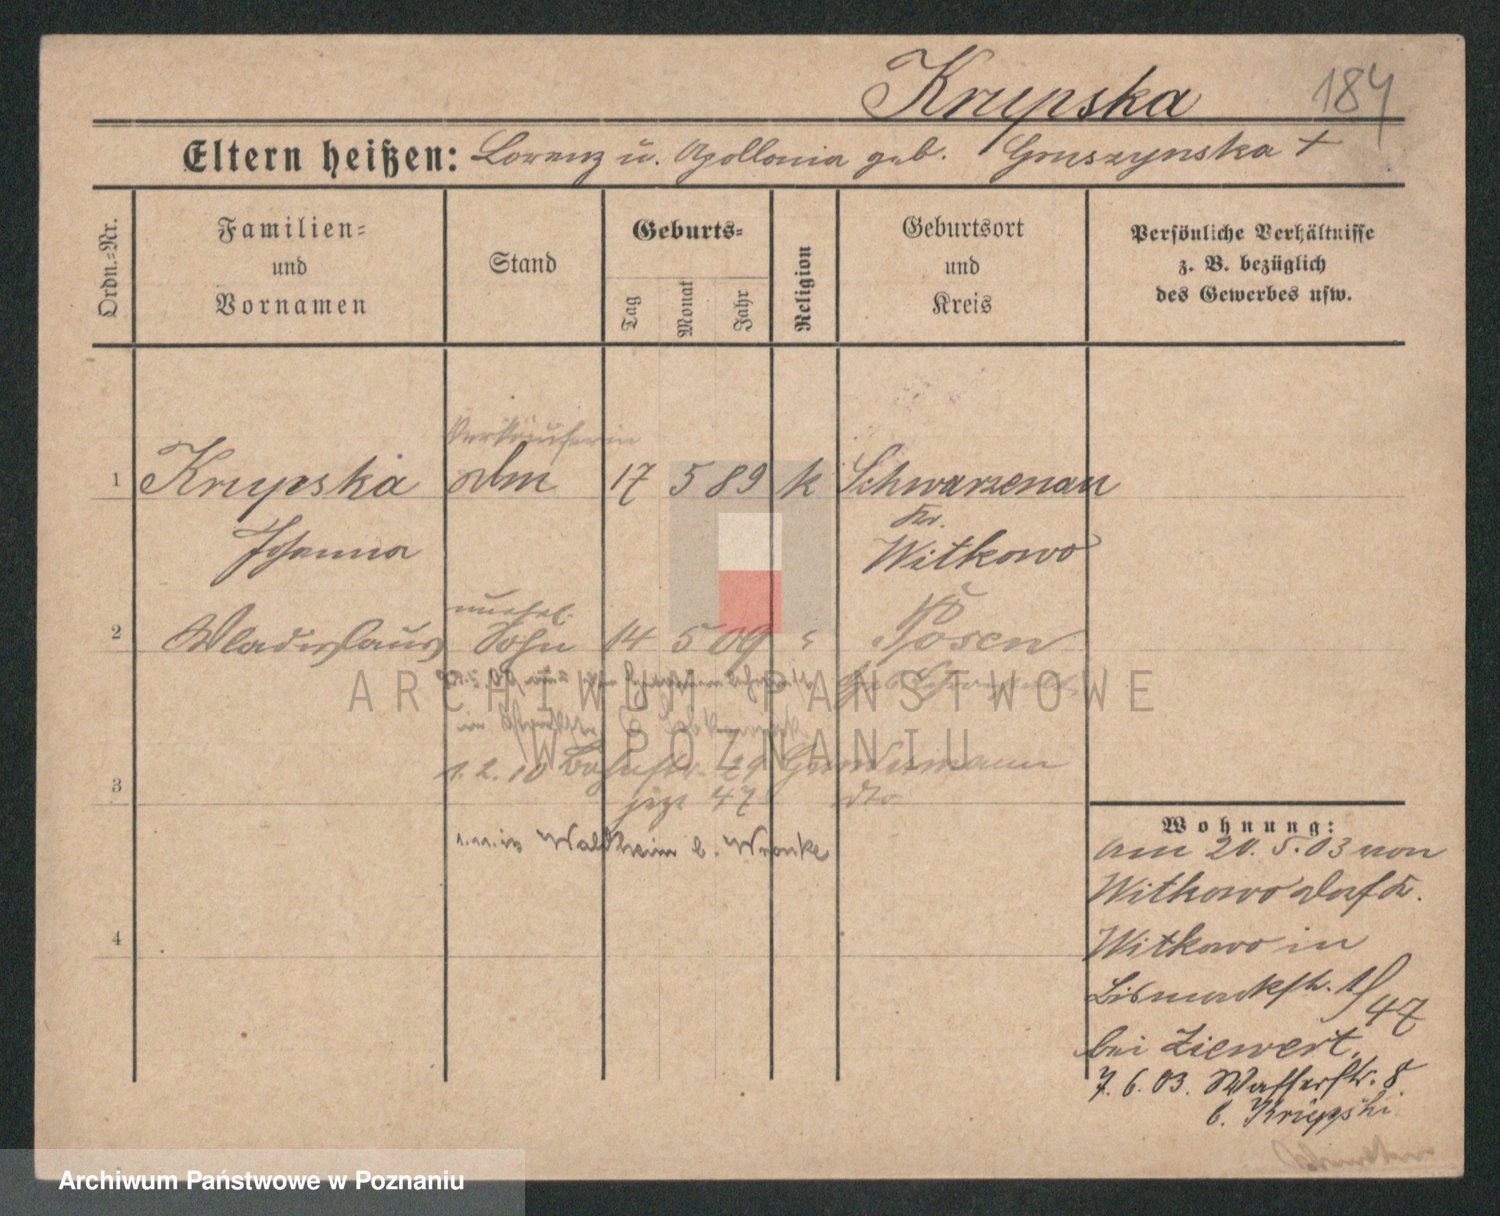 Krupska
184
Eltern heißen: Lorenz u. Apollonia geb. Gruszynska +
Ordn.=Nr.
Familien=
und
Vornamen
Stand
Geburts=
Tag
Monat
Jahr
Religion
Geburtsort
und
Kreis
Persönliche Verhältnisse
z. B. bezüglich
des Gewerbes usw.
Verkäuferin
1 Krupska 17 5 89 k Schwarzenau
Kr.
Johanna Witkowo
unehel.
2 Wladislaus Sohn 14 5 09 Posen
ARCHIWUM PAŃSTWOWE
W POZNANIU
3
1.2.10 Bahnstr. 29
jetzt 47 dto
Waldheim b. Wronke
4
Wohnung:
am 20. 5. 03 von
Witkowo Kr.
Witkowo in
Bismarckstr. 1/
47
bei Ziewert.
7. 6. 03. Wasserstr. 8
b. Krupski
Archiwum Państwowe w Poznaniu